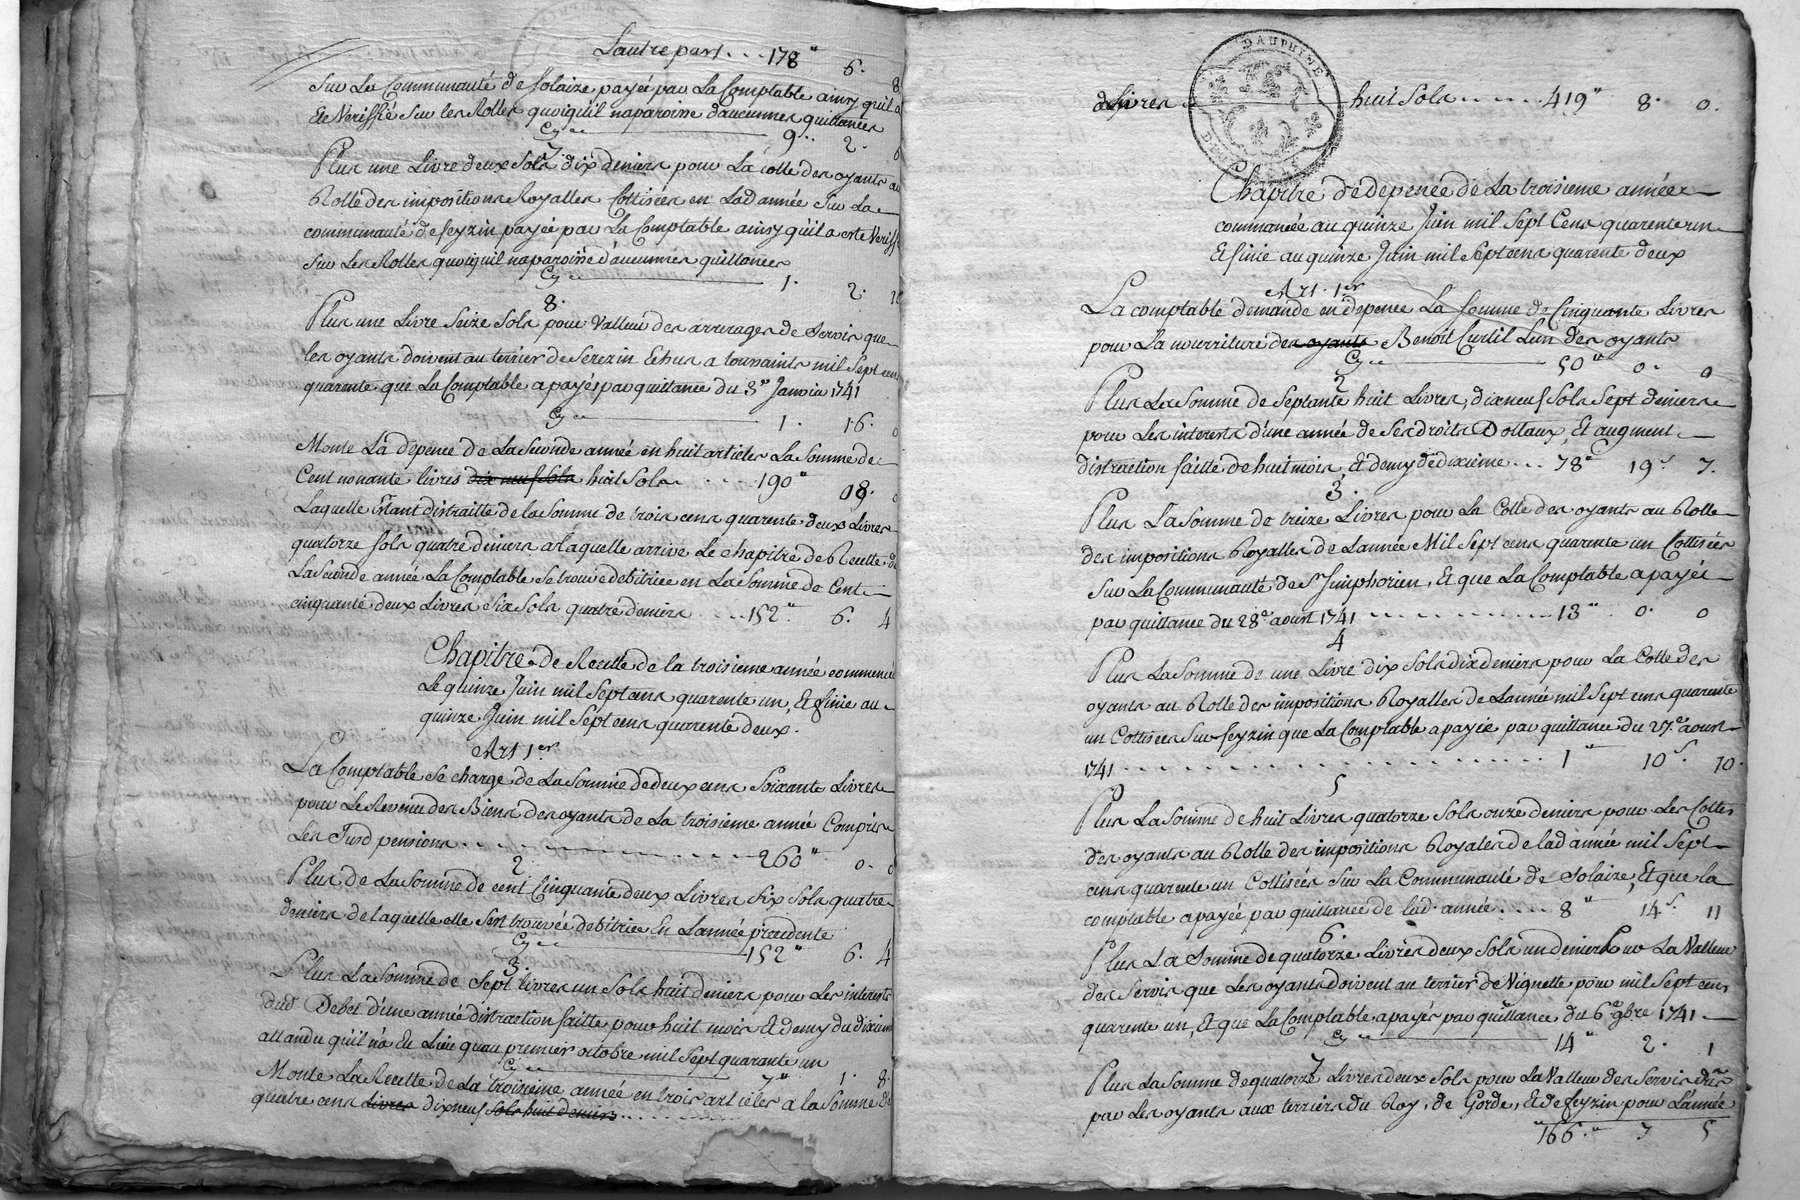 Lautre part . . . 178" 6. 8
Sur La Communauté de Solaize payée par La Comptable ainsy quil a
Ete Veriffié Sur les Rolles quoiquil naparoisse d'aucunnes quittances
Cy 9. 2. 6
7.
Plus une Livre deux Sols dix deniers pour La cotte des oyants au
Rolle des impositions Royalles Cottisées en Lad année Sur La
communauté de feyzin payée par La Comptable ainsy qu'il a esté Veriff
Sur Les Rolles quoiquil naparoisse d'aucunnes quittances
Cy 1. 2. 10
8.
Plus une Livre Seize Sols pour Valleur des arrerages de Servis que
les oyants doivent au terrier de Serezin Echus a toussaints mil Sept cens
quarente que La Comptable a payés par quittance du 3e Janvier 1741
Cy 1. 16. 0
Monte La depence de La Seconde année en huit articles La Somme de
Cent nonante livres dix neuf Sols huit Sols . . . . 190" 08. 0
Laquelle Etant distraitte de la Somme de trois cens quarente deux Livres
quatorze Sols quatre deniers a laquelle arrive Le chapitre de Recette de
La Seconde année La Comptable Se trouve debitrice en La Somme de Cent
cinquante deux Livres Six Sols quatre deniers . . . . 152" 6. 4
Chapitre de Recette de la troisieme année commencé
Le quinze Juin mil Sept cens quarente un, Et finie au
quinze Juin mil Sept cens quarente deux.
Art 1er.
La Comptable Se charge de La Somme de deux cens Soixante Livres
pour Le Revenu des Biens des oyants de La troisieme année Compris
Les Susd pensions . . . . . . . . 260" 0. 0
2.
Plus de La Somme de cent Cinquante deux Livres Six Sols quatre
deniers de laquelle elle Sest trouvée debitrice En Lannée precedente
Cy 152" 6. 4
3.
Plus La Somme de Sept livres un Sols huit deniers pour Les interests
dud Debet d'une année distraction faitte pour huit mois Et demy du dixieme
attandu qu'il n'a Eu Lieu quau premier octobre mil Sept quarante un
Cy 7" 1. 8.
Monte La Recette de La troisieme année en trois articles a la Somme de
quatre cens Livres dixneuf Sols huit deniers . . . . . . . .
DAUPHINE
livres huit Sols . . . . . 419" 8. 0.
Chapitre de depence de La troisieme année
commancée au quinze Juin mil Sept Cens quarente un
Et finie au quinze Juin mil Sept cens quarente deux
Art. 1er
La comptable demande en depence La Somme de Cinquante Livres
pour La nourriture des oyants Benoit Curtil Lun des oyants
Cy 50" 0. 0
2
Plus La Somme de Septante huit Livres, dixneuf Sols Sept deniers
pour Les interests d'une année de Ses droits Dottaux, Et augment
distraction faitte de huit mois, Et demy de dixieme . . . 78" 19s. 7.
3.
Plus La Somme de treize Livres pour La Cotte des oyants au Rolle
des impositions Royalles de L'année Mil Sept cens quarente un Cottisées
Sur La Communauté de St Simphorien, Et que La Comptable a payée
par quittance du 28e aoust 1741 . . . . . . . . 13" 0. 0
4
Plus La Somme de une Livre dix Sols dix deniers pour La Cotte des
oyants au Rolle des impositions Royalles de Lannée mil Sept cens quarente
un Cottisées Sur feyzin que La Comptable a payée par quittance du 27e aoust
1741 . . . . . . . . . . . . . . . 1" 10s. 10.
5
Plus La Somme de huit Livres quatorze Sols onze deniers pour Les Cottes
des oyants au Rolle des impositions Royales de lad année mil Sept
cens quarente un Cottisées Sur La Communauté de Solaize, Et que la
comptable a payée par quittance de lad. année . . . . 8" 14s. 11
6.
Plus La Somme de quatorze Livres deux Sols un denier Pour La Valleur
des Servis que Les oyants doivent au terrier de Vignette pour mil Sept cens
quarente un, Et que La Comptable a payés par quittance du 6e 9bre 1741
Cy 14" 2. 1
7
Plus La Somme de quatorze Livres deux Sols pour La Valleur des Servis dus
par Les oyants aux terriers du Roy, de Gorde, Et de feyzin pour L'année
166." 7 5